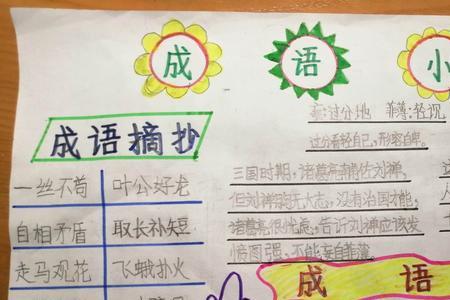 成 语 小
成语摘抄
一丝不苟 叶公好龙
自相矛盾 取长补短
走马观花 飞蛾扑火
妄:过分地 菲薄:轻视
过分看轻自己,形容自卑。
三国时期,诸葛亮辅佐刘禅,
但刘禅胸无大志,没有治国才能,
诸葛亮很忧虑,告诉刘禅应该发
愤图强,不能妄自菲薄
成 语